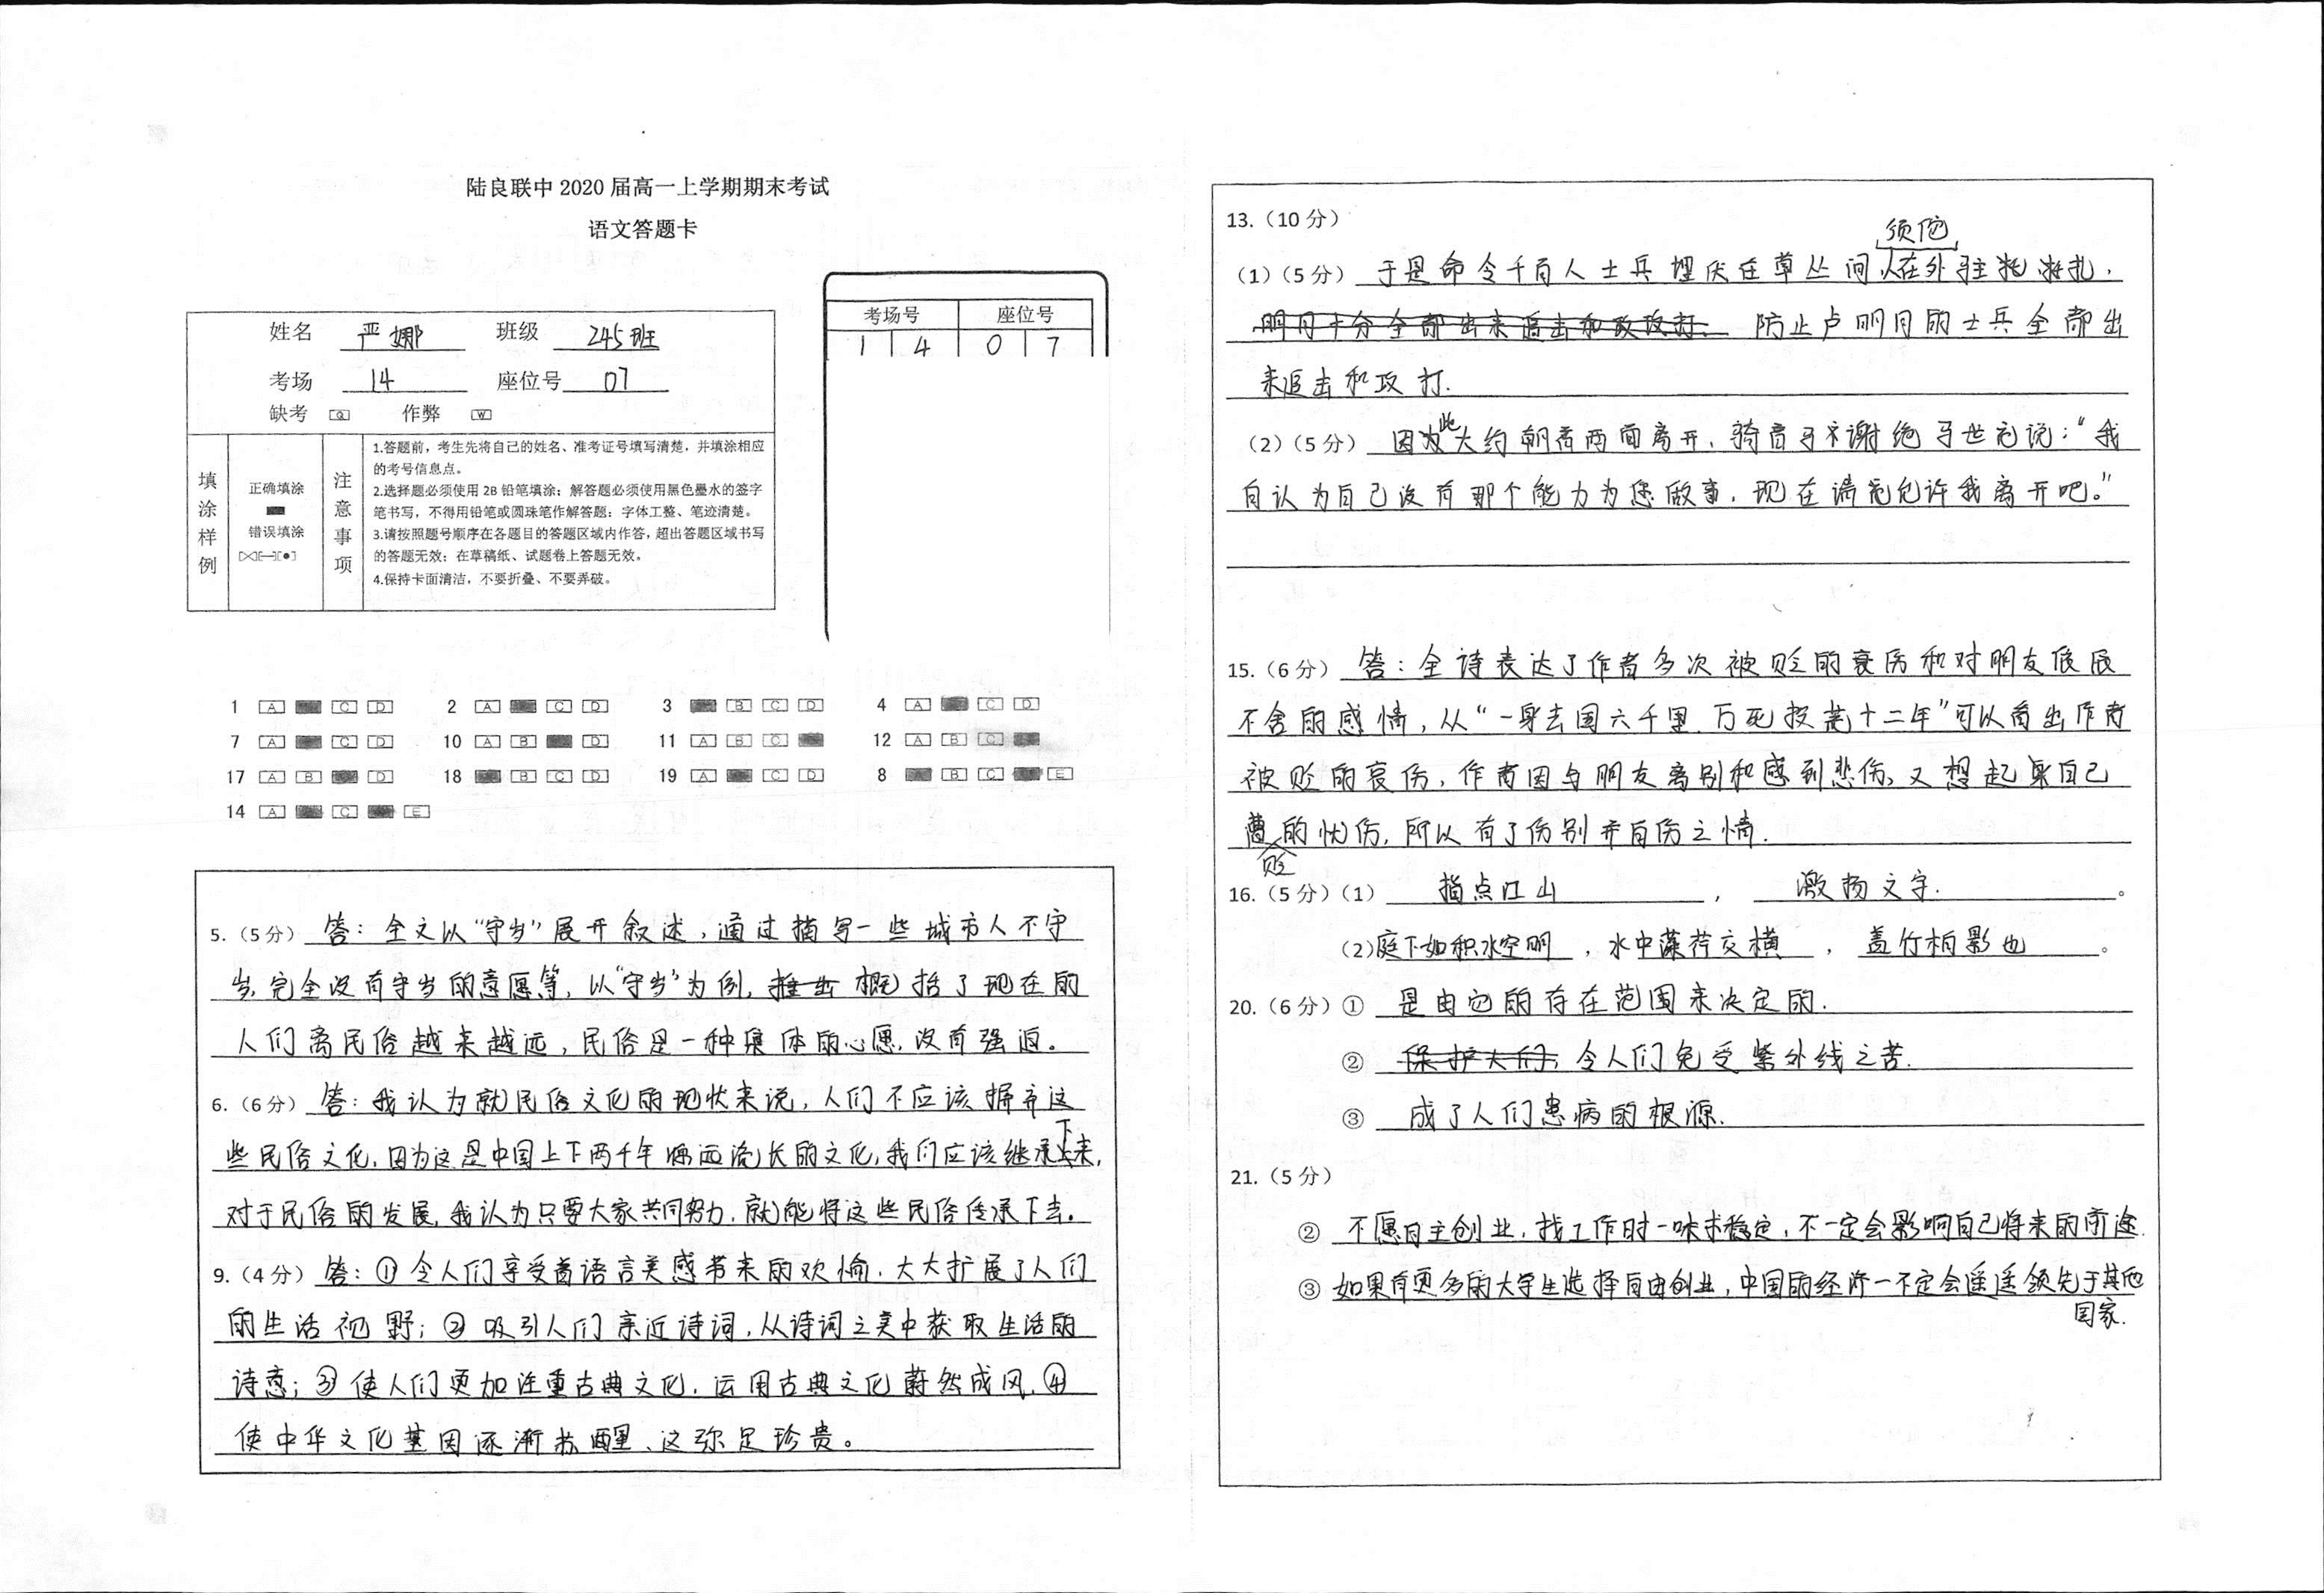 陆良联中 2020 届高一上学期期末考试
语文答题卡
姓名 严娜 班级 245班
考场 14 座位号 07
缺考 [Q] 作弊 [W]
考场号 座位号
1 4 0 7
填涂样例
正确填涂
错误填涂
注意事项
1.答题前，考生先将自己的姓名、准考证号填写清楚，并填涂相应
的考号信息点。
2.选择题必须使用 2B 铅笔填涂；解答题必须使用黑色墨水的签字
笔书写，不得用铅笔或圆珠笔作解答题；字体工整、笔迹清楚。
3.请按照题号顺序在各题目的答题区域内作答，超出答题区域书写
的答题无效；在草稿纸、试题卷上答题无效。
4.保持卡面清洁，不要折叠、不要弄破。
1 [A] [C] [D] 2 [A] [C] [D] 3 [B] [C] [D] 4 [A] [C] [D]
7 [A] [C] [D] 10 [A] [B] [D] 11 [A] [B] [C] 12 [A] [B] [C]
17 [A] [B] [D] 18 [B] [C] [D] 19 [A] [C] [D] 8 [B] [C] [E]
14 [A] [C] [E]
5.（5 分）答：全文以“守岁”展开叙述，通过描写一些城市人不守
岁，完全没有守岁的意愿等，以“守岁”为例，推出 概括了现在的
人们离民俗越来越远，民俗是一种集体的心愿，没有强迫。
6.（6 分）答：我认为就民俗文化的现状来说，人们不应该摒弃这
些民俗文化，因为这是中国上下两千年源远流长的文化，我们应该继承下来，
对于民俗的发展，我认为只要大家共同努力，就能将这些民俗传承下去。
9.（4 分）答：①令人们享受着语言美感带来的欢愉，大大扩展了人们
的生活视野；②吸引人们亲近诗词，从诗词之美中获取生活的
诗意；③使人们更加注重古典文化，运用古典文化蔚然成风，④
使中华文化基因逐渐苏醒、这弥足珍贵。
13.（10 分）
须陀
（1）（5 分）于是命令千百人士兵埋伏在草丛间，人在外驻扎，
明月十分全部出来追击和攻打. 防止卢明月的士兵全部出
来追击和攻打.
（2）（5 分）因此大约朝着西面离开，骑着马不谢绝了世充说：“我
自认为自己没有那个能力为您做事，现在请您允许我离开吧。”
15.（6 分）答：全诗表达了作者多次被贬的哀伤和对朋友依依
不舍的感情，从“一身去国六千里，万死投荒十二年”可以看出作者
被贬的哀伤，作者因与朋友离别和感到悲伤，又想起自己
遭贬的忧伤，所以有了伤别并自伤之情.
16.（5 分）（1） 指点江山 ， 激扬文字. 。
（2）庭下如积水空明 ，水中藻荇交横 ， 盖竹柏影也 。
20.（6 分）① 是由它的存在范围来决定的.
② 保护人们, 令人们免受紫外线之苦.
③ 成了人们患病的根源.
21.（5 分）
② 不愿自主创业，找工作时一味求稳定，不一定会影响自己将来的前途.
③ 如果有更多的大学生选择自由创业，中国的经济一不定会遥遥领先于其他
国家.